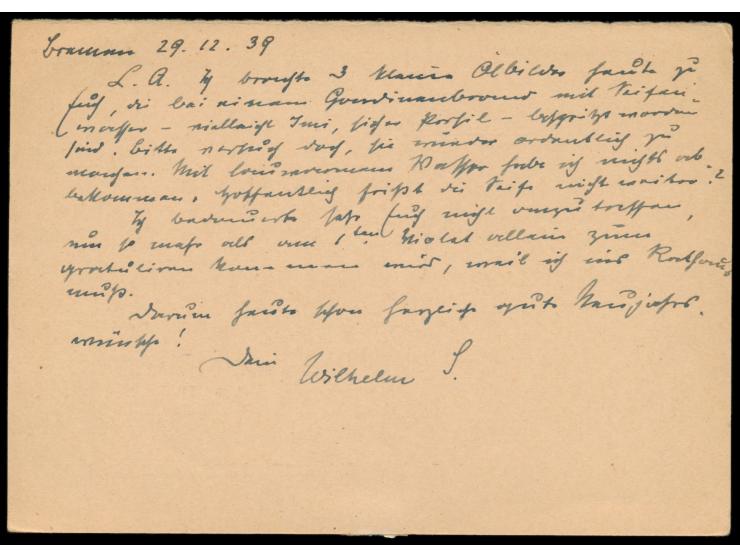 Bremen 29.12.39
L. A. Ich brachte 3 kleine Ölbilder heute zu
Euch, die bei einem Gardinenbrand mit Seifen-
wasser – vielleicht Imi, sicher Persil – bespritzt worden
sind. Bitte versuch doch, sie wieder ordentlich zu
machen. Mit lauwarmem Wasser habe ich nichts ab-
bekommen. Hoffentlich frißt die Seife nicht weiter?
Ich bedauerte sehr Euch nicht anzutreffen,
um so mehr als am 1ten Violet allein zum
gratuliren kommen wird, weil ich ins Rathaus
muß.
Darum heute schon herzliche gute Neujahrs-
wünsche!
Dein Wilhelm S.